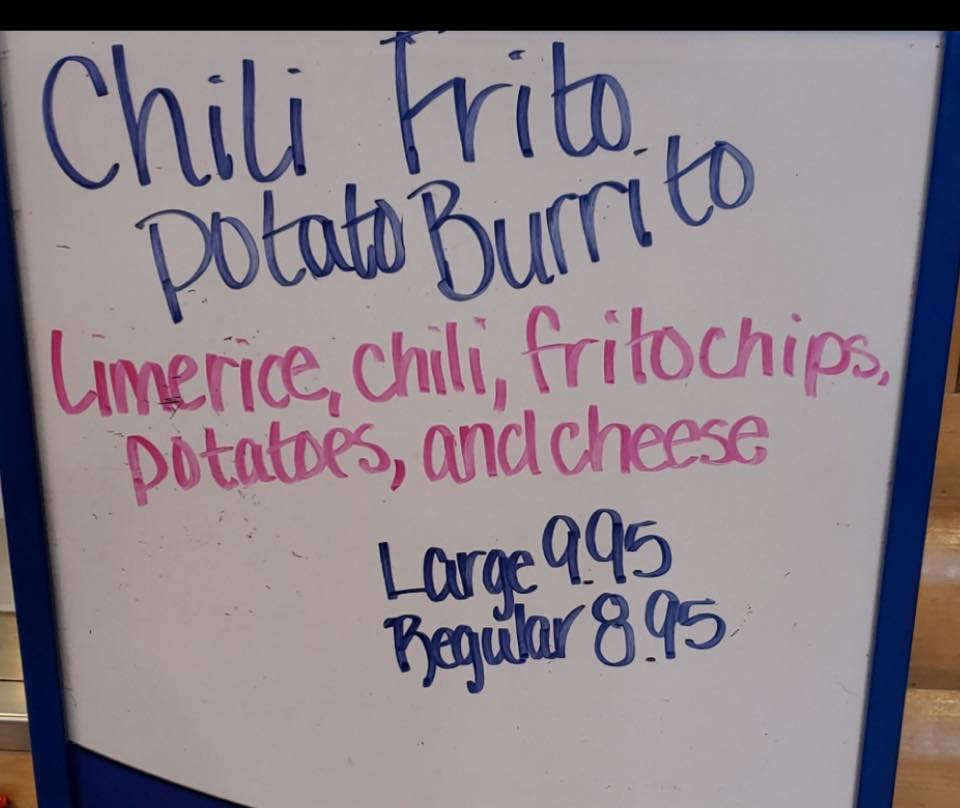 Chili Frito
Potato Burrito
Limerice, chili, frito chips,
potatoes, and cheese
Large 9.95
Regular 8.95